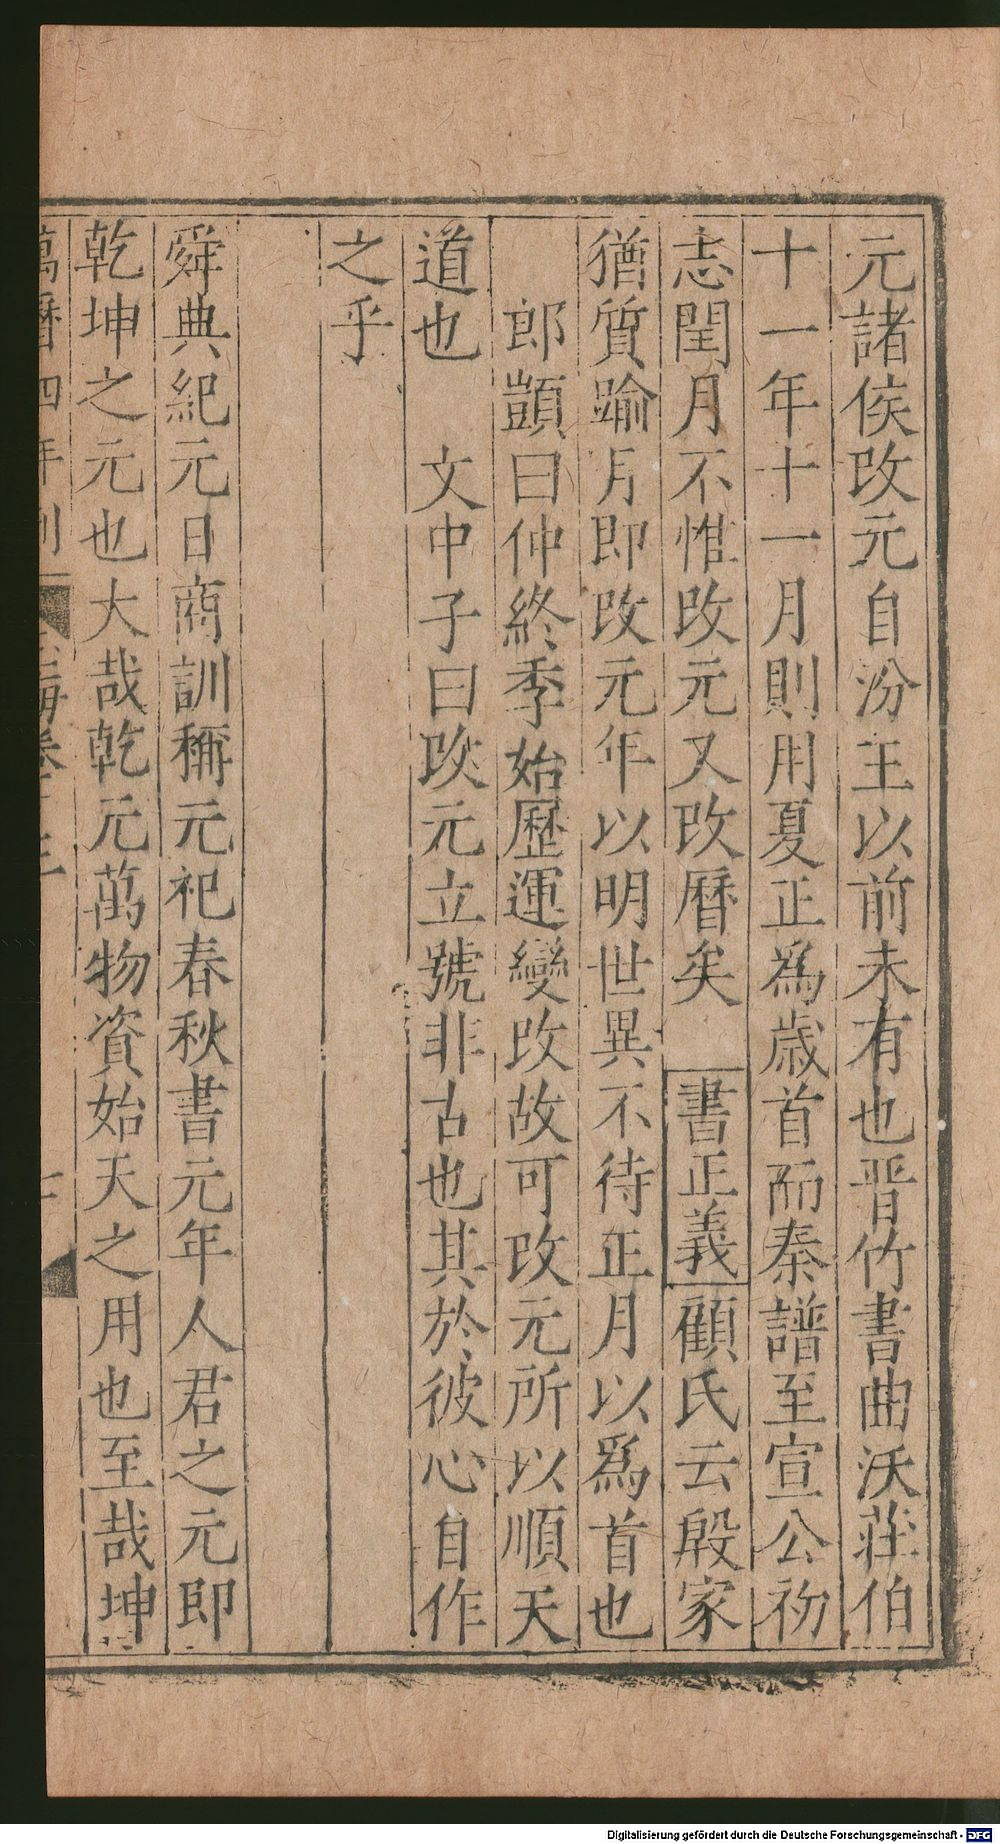 元諸侯改元自汾王以前未有也晋竹書曲沃莊伯
十一年十一月則用夏正爲歳首而秦譜至宣公初
志閏月不惟改元又改曆矣 書正義 顧氏云殷家
猶質踰月即改元年以明世異不待正月以爲首也
郎顗曰仲終季始歷運變改故可改元所以順天
道也 文中子曰改元立號非古也其於彼心自作
之乎
舜典紀元日商訓稱元祀春秋書元年人君之元即
乾坤之元也大哉乾元萬物資始天之用也至哉坤
萬曆四年刊 海卷十三
Digitalisierung gefördert durch die Deutsche Forschungsgemeinschaft - DFG